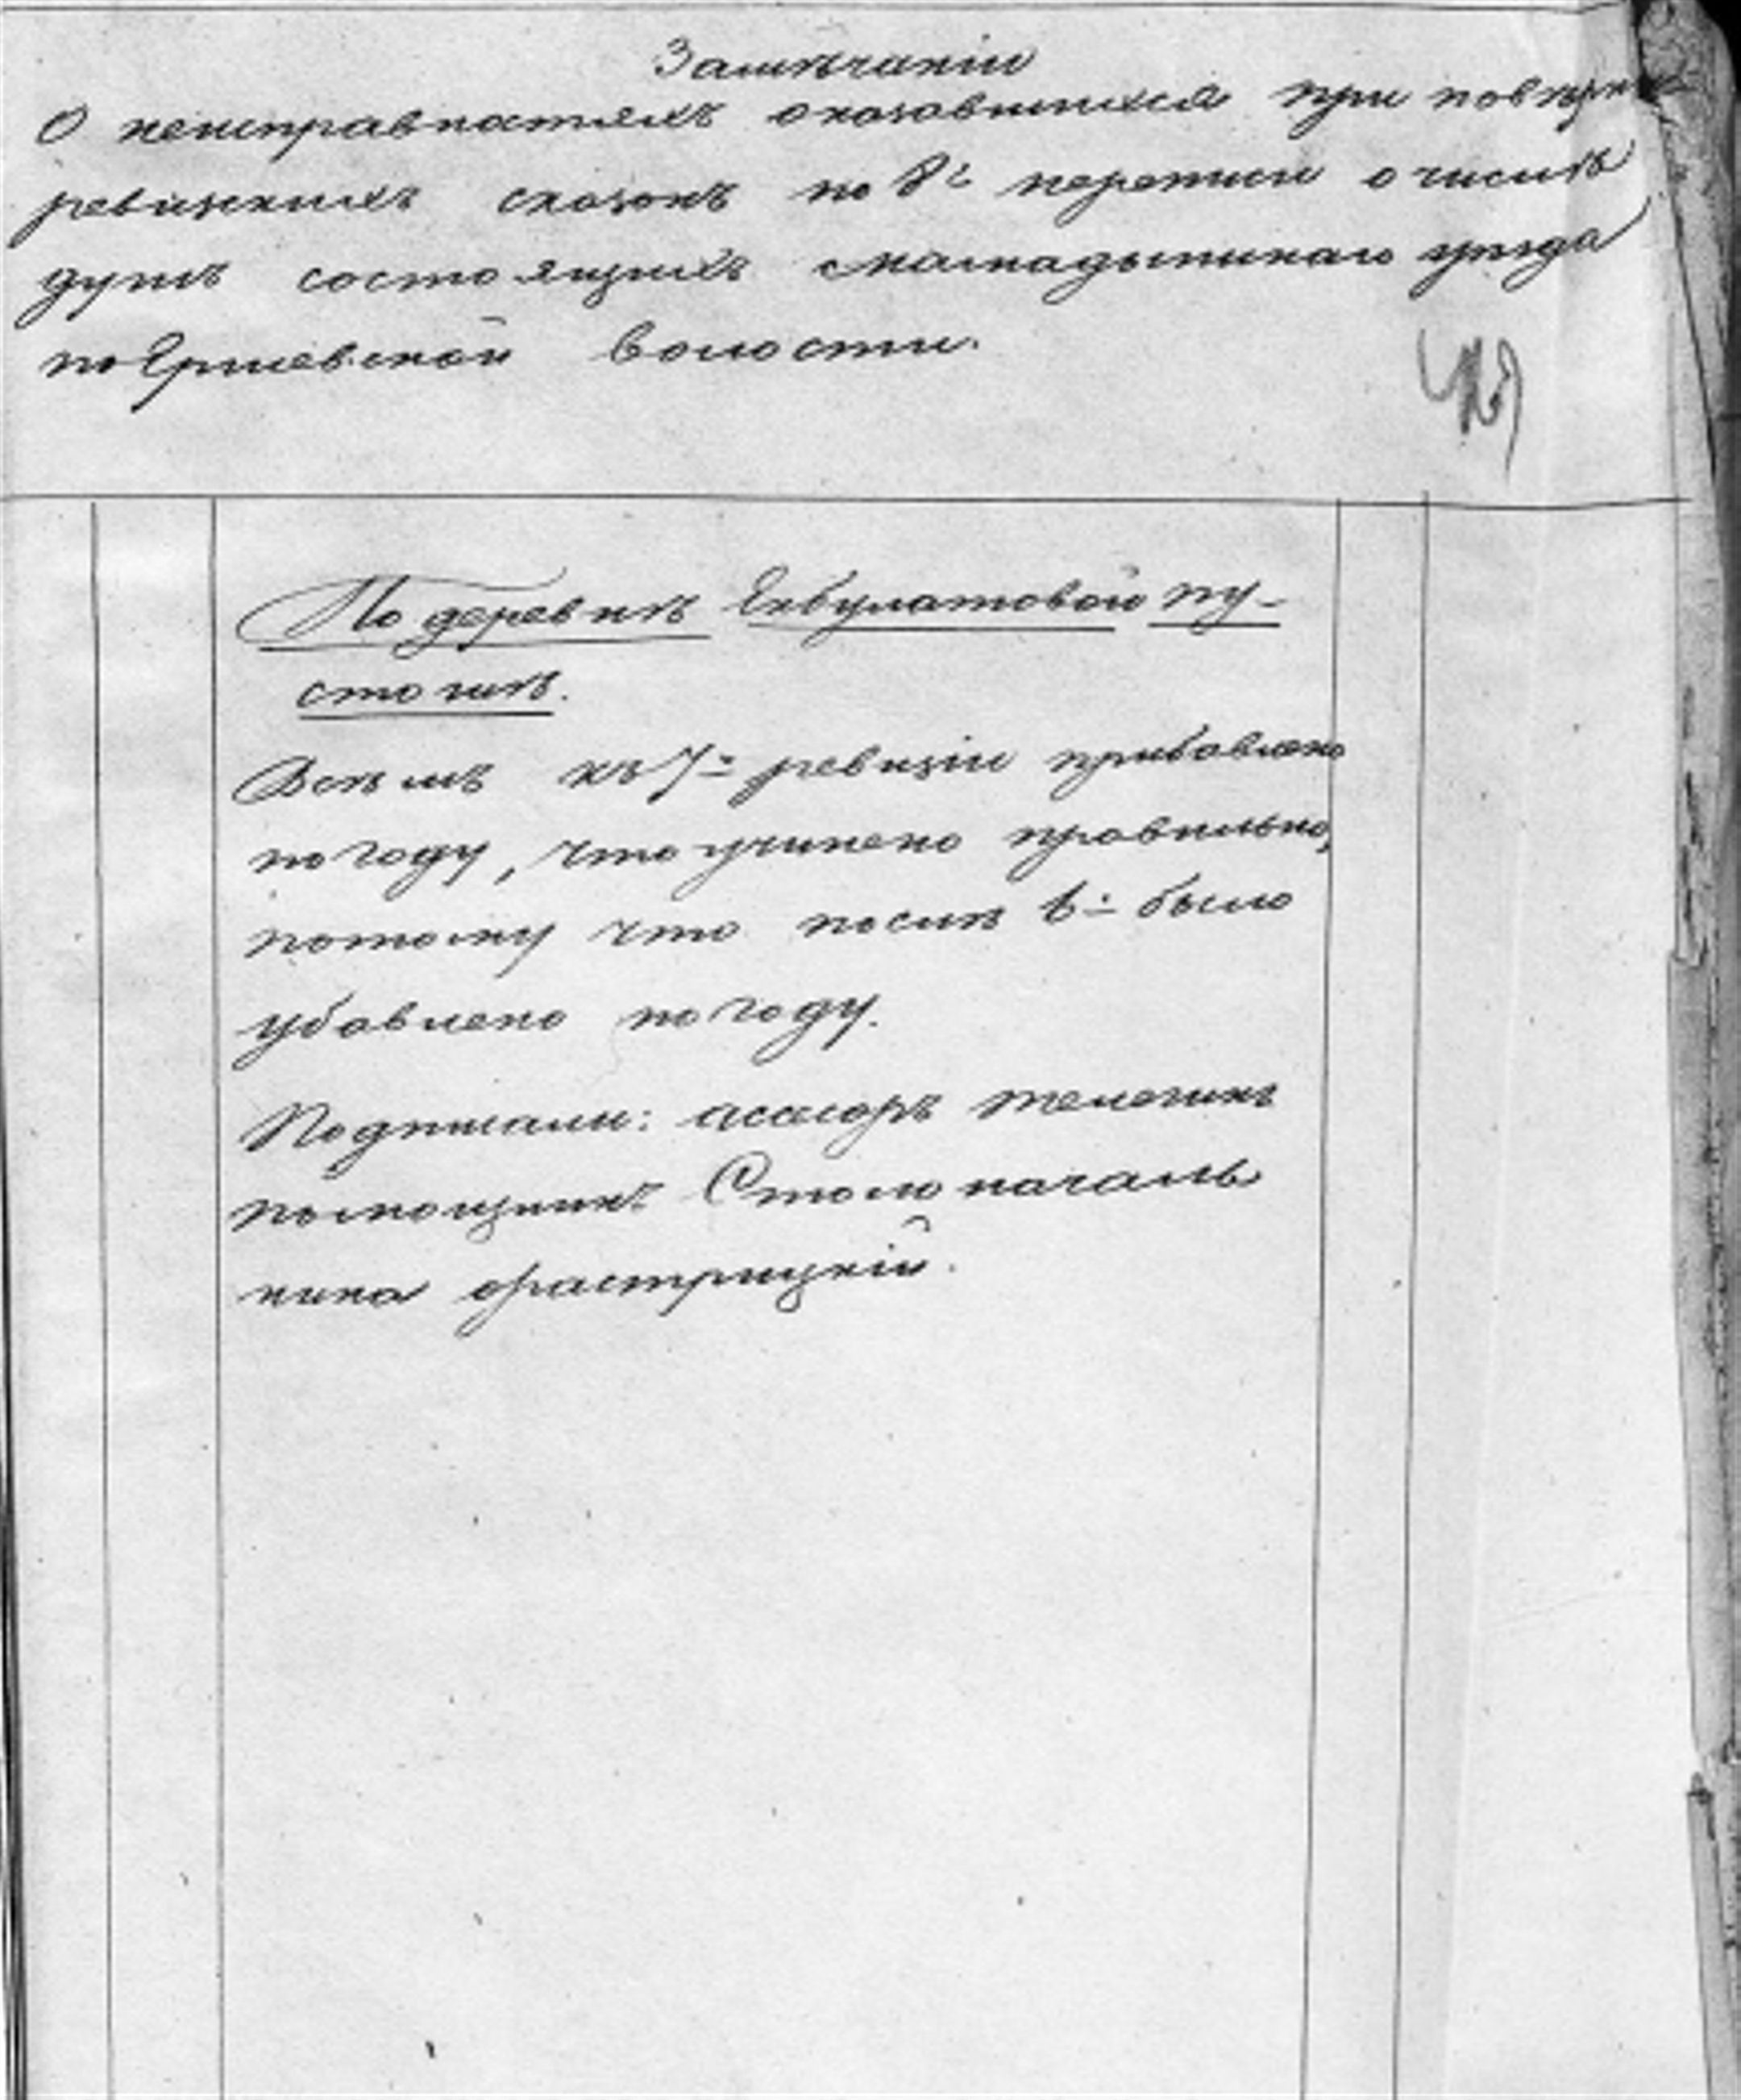 Замѣчаніи
О неисправностяхъ оказавшихся при повѣркѣ
ревизскихъ сказокъ по 8й переписи о числѣ
душъ состоящихъ Мамадышскаго уѣзда
по волости.
По деревнѣ Екбулатовой пу-
стошѣ.
Всѣмъ къ 7й ревизіи прибавлено
по году, что учинено правильно,
потому что послѣ 6й было
убавлено по году.
Подписали: асесоръ Телегинъ
помощникъ Столоначаль
ника